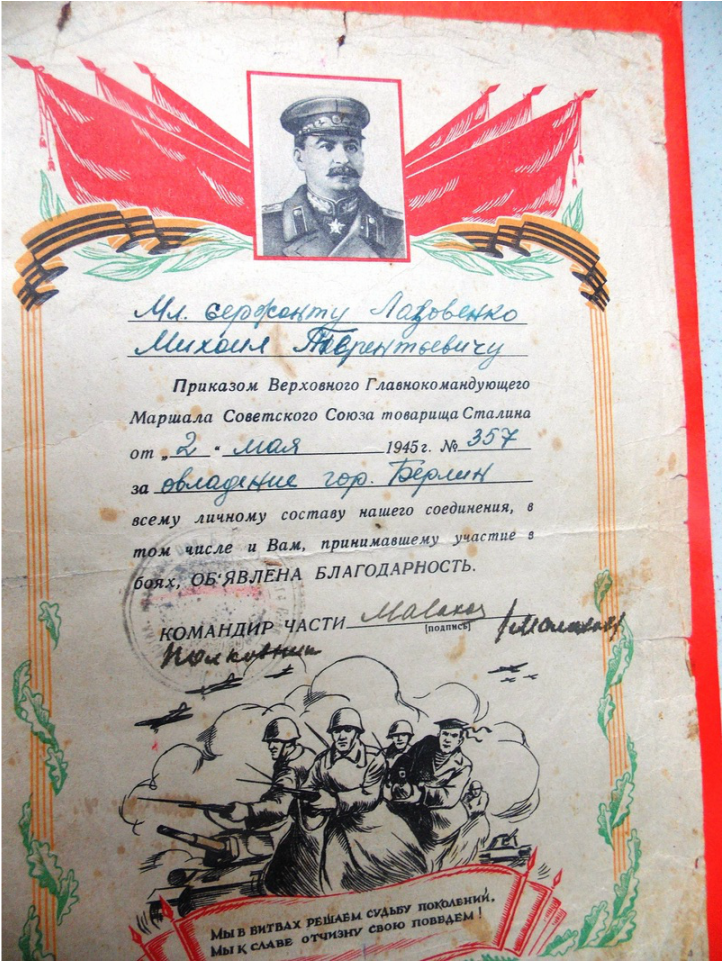 Мл. сержанту Лазовенко
Михаил Таврентьевичу
Приказом Верховного Главнокомандующего
Маршала Советского Союза товарища Сталина
от „2“ мая 1945 г. № 357
за овладение гор. Берлин
всему личному составу нашего соединения, в
том числе и Вам, принимавшему участие в
боях, ОБ'ЯВЛЕНА БЛАГОДАРНОСТЬ.
КОМАНДИР ЧАСТИ
(подпись)
полковник
МЫ В БИТВАХ РЕШАЕМ СУДЬБУ ПОКОЛЕНИЙ,
МЫ К СЛАВЕ ОТЧИЗНУ СВОЮ ПОВЕДЕМ!